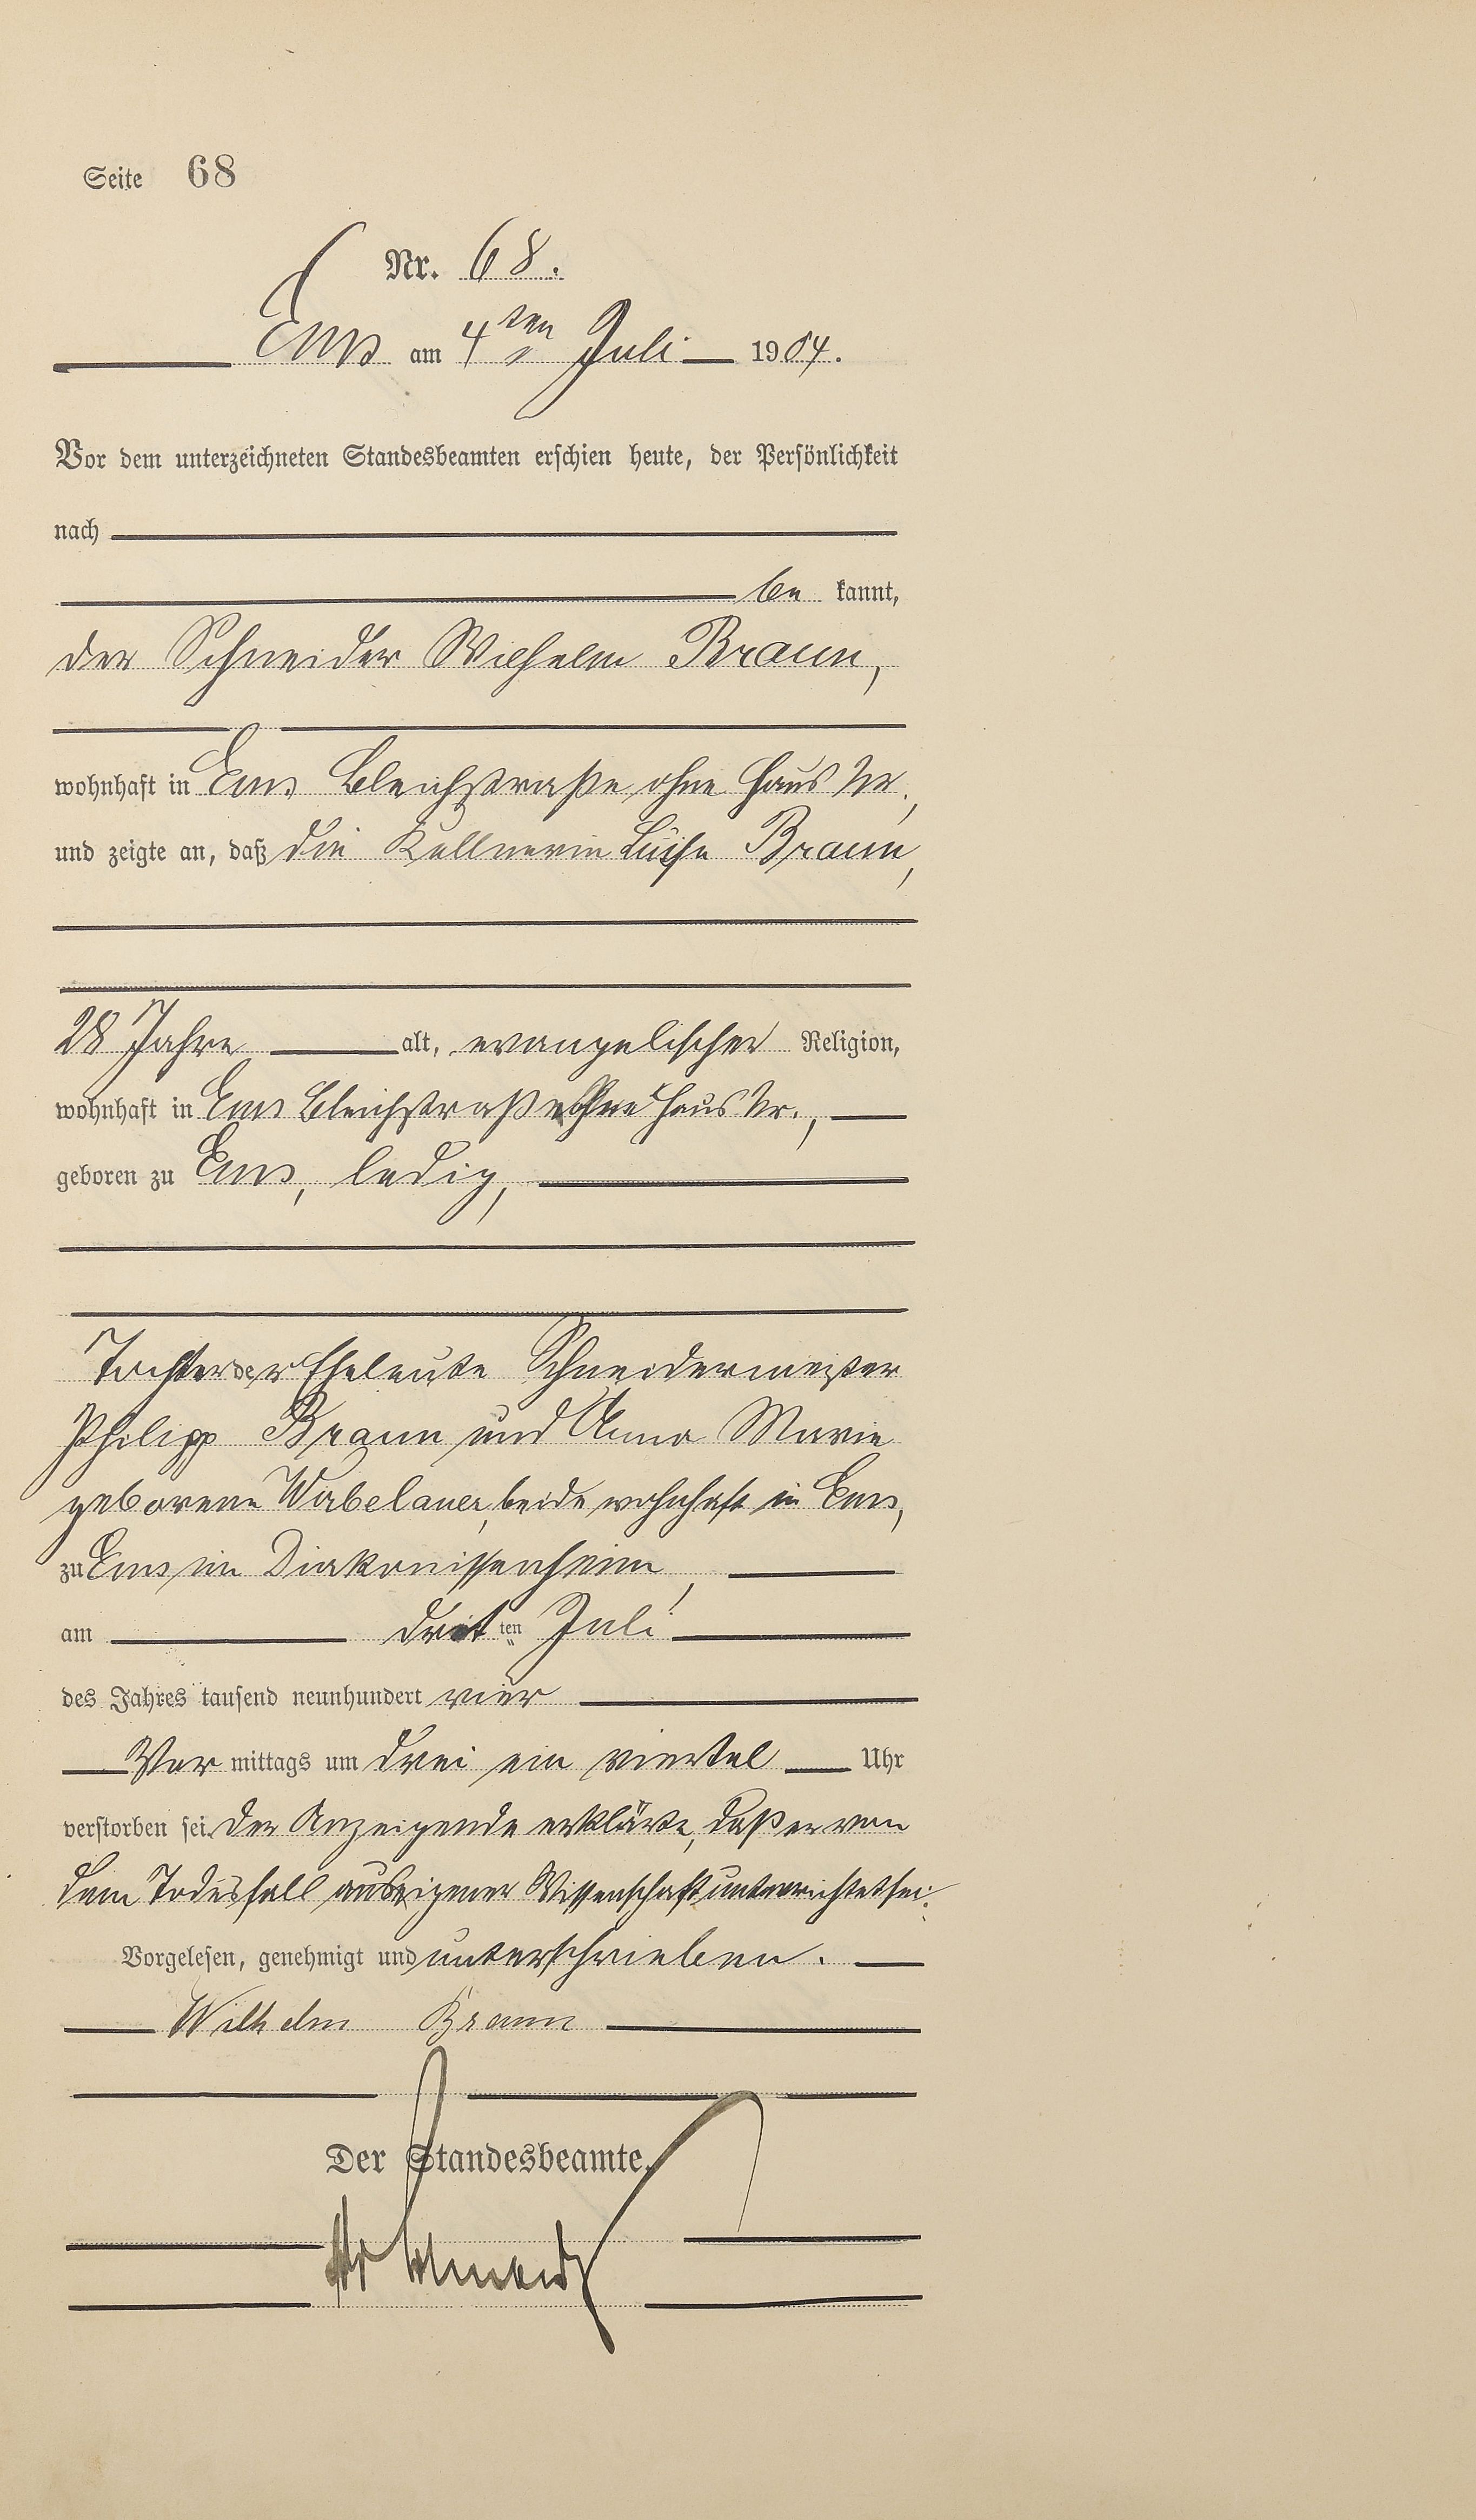 Seite 68
Nr. 68.
Ems am 4ten Juli 1904.
Vor dem unterzeichneten Standesbeamten erschien heute, der Persönlichkeit
nach
be kannt,
der Schneider Wilhelm Braun,
wohnhaft in Ems Bleichstraße ohne Haus Nr.,
und zeigte an, daß die Kellnerin Luise Braun,
28 Jahre alt, evangelischer Religion,
wohnhaft in Ems Bleichstraße ohne Haus Nr.,
geboren zu Ems, ledig,
Tochter der Eheleute Schneidermeister
Philipp Braun und Anna Marie
geborene Wabelauer, beide wohnhaft in Ems,
zu Ems im Diakonissenheim,
am dritten Juli
des Jahres tausend neunhundert vier
Vor mittags um drei ein viertel Uhr
verstorben sei. Der Anzeigende erklärte, daß er von
dem Todesfall aus eigener Wissenschaft unterrichtet sei.
Vorgelesen, genehmigt und unterschrieben.
Wilhelm Braun
Der Standesbeamte.